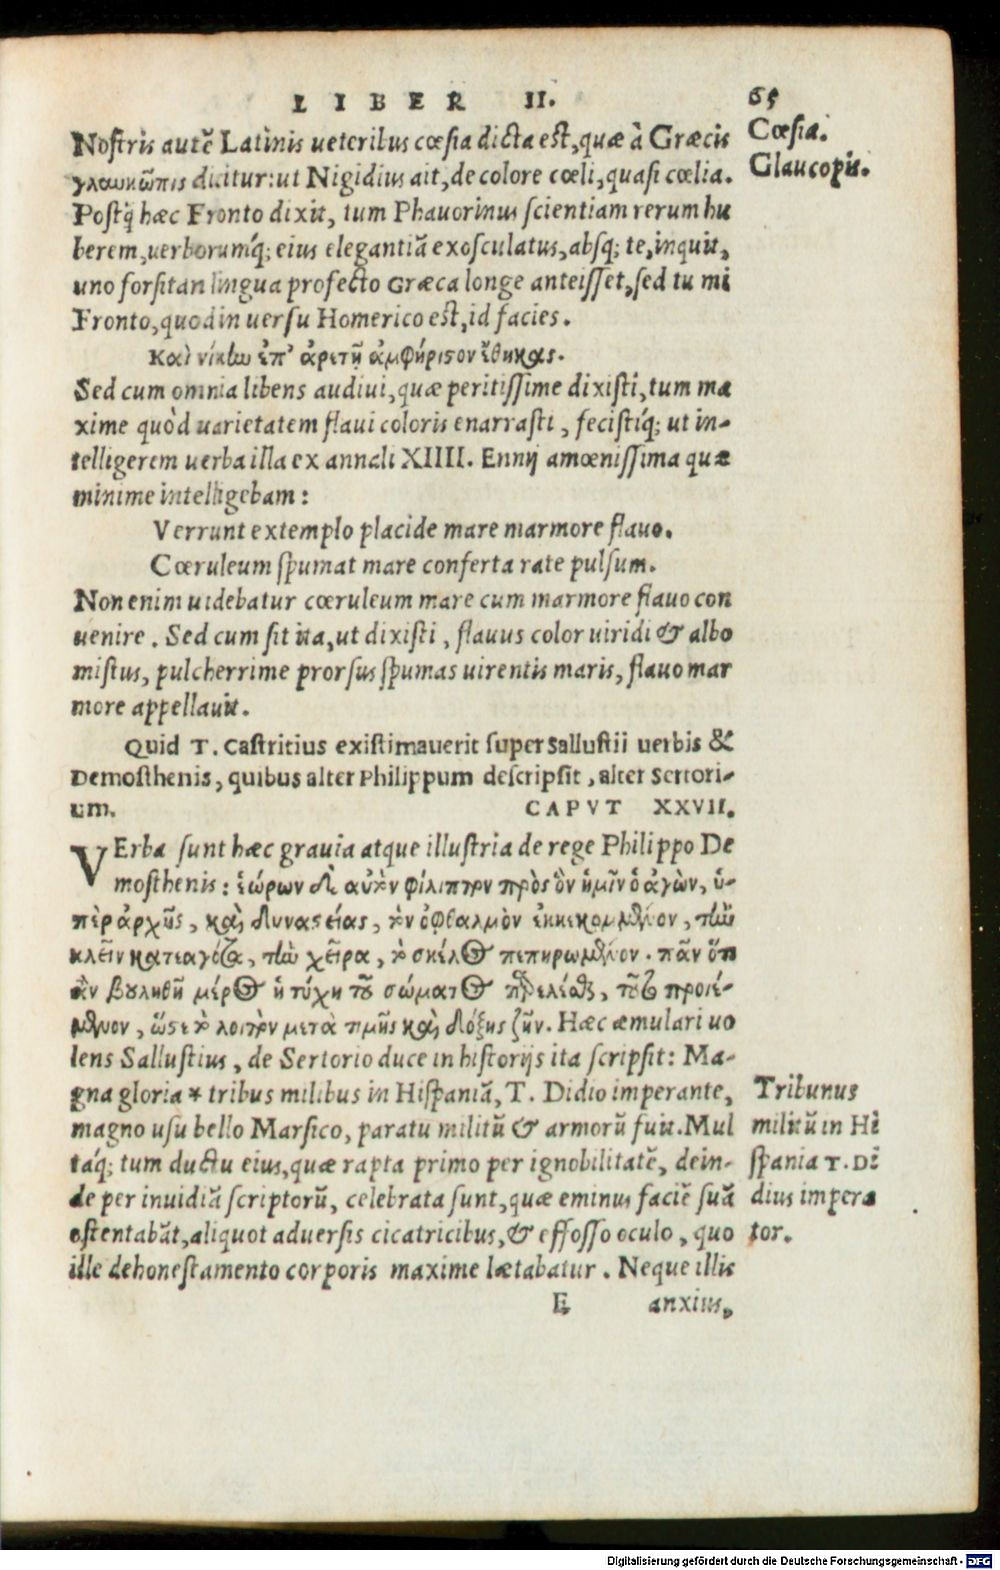 LIBER II. 65
Nostris autẽ Latinis ueteribus cœsia dicta est, quæ à Græcis
γλαυκῶπις dicitur: ut Nigidius ait, de colore cœli, quasi cœlia.
Postq̃ hæc Fronto dixit, tum Phauorinus scientiam rerum hu
berem, uerborumq́; eius elegantiã exosculatus, absq; te, inquit,
uno forsitan lingua profecto Græca longe anteisset, sed tu mi
Fronto, quod in uersu Homerico est, id facies.
Καὶ νίκλω ἐπ' ἀρετῇ ἀμφήριστον ἔθηκας.
Sed cum omnia libens audiui, quæ peritissime dixisti, tum ma
xime quòd uarietatem flaui coloris enarrasti, fecistiq́; ut in-
telligerem uerba illa ex annali XIIII. Ennij amœnissima quæ
minime intelligebam:
Verrunt extemplo placide mare marmore flauo.
Cœruleum spumat mare conferta rate pulsum.
Non enim uidebatur cœruleum mare cum marmore flauo con
uenire. Sed cum sit ita, ut dixisti, flauus color uiridi & albo
mistus, pulcherrime prorsus spumas uirentis maris, flauo mar
more appellauit.
Quid T. Castritius existimauerit super Sallustii uerbis &
Demosthenis, quibus alter Philippum descripsit, alter Sertori-
um. CAPVT XXVII.
VErba sunt hæc grauia atque illustria de rege Philippo De
mosthenis: ἑώρων δὲ αὐτὸν φίλιππον πρὸς ὃν ἡμῖν ὁ ἀγὼν, ὑ-
πὲρ ἀρχῆς, καὶ δυναστείας, τὸν ὀφθαλμὸν ἐκκεκομμένον, τὴν
κλεῖν κατεαγότα, τὴν χεῖρα, τὸ σκέλος πεπηρωμένον. πᾶν ὅτι
ἂν βουληθῇ μέρος ἡ τύχη τοῦ σώματος παρελέσθαι, τοῦτο προιέ-
μενον, ὥστε τὸ λοιπὸν μετὰ τιμῆς καὶ δόξης ζῆν. Hæc æmulari uo
lens Sallustius, de Sertorio duce in historijs ita scripsit: Ma-
gna gloria * tribus milibus in Hispaniã, T. Didio imperante,
magno usu bello Marsico, paratu militũ & armorũ fuit. Mul
táq; tum ductu eius, quæ rapta primo per ignobilitatẽ, dein-
de per inuidiã scriptorũ, celebrata sunt, quæ eminus faciẽ suã
ostentabãt, aliquot aduersis cicatricibus, & effosso oculo, quo
ille dehonestamento corporis maxime lætabatur. Neque illis
E anxius,
Cœsia.
Glaucopis.
Tribunus
militũ in Hi
spania T. Di
dius impera
tor.
Digitalisierung gefördert durch die Deutsche Forschungsgemeinschaft - DFG